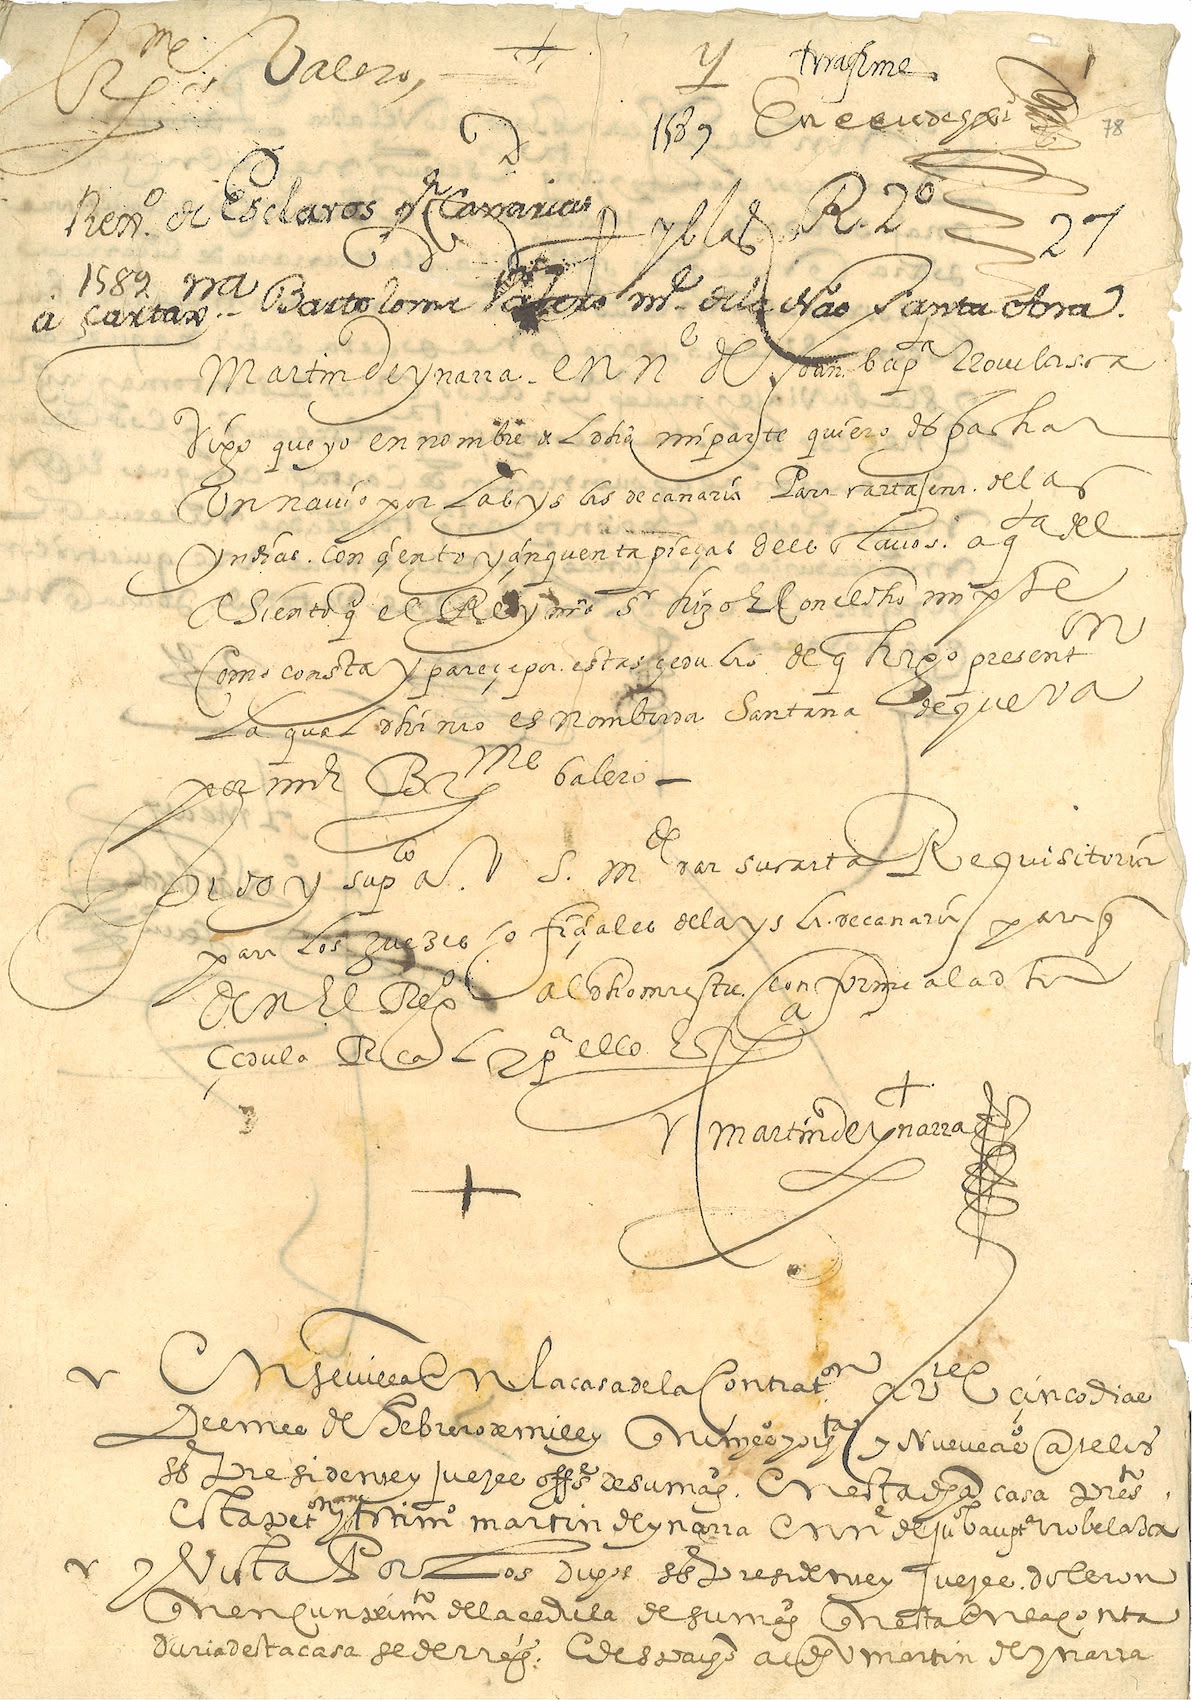 Rme Valero,
78
1589
Reno. de Esclavos por Canarias yslas R. 2o
27
1589 na Bartolome Valero me. de la Nao Santa Ana.
a Cartaxa.
Martin de ynarra - en no del Joan bapta Rrovelasca
digo que yo en nombre de el dho mi parte quiero despachar
un navio por las yslas de canaria Para cartajena. de las
yndias. con çiento y çinquenta pieças de esclavos. a qta del
asiento q el Rey nro Sr hizo con el dho mi pte
como consta y pareçe por. estas çedulas de q hago presenton
la qual dho navio es nombrada Santana de que va
por mae Brme balero -
pido y supco a. V S. md dar su carta Requisitoria
para los Juezes ofiçiales de la ysla. de canaria para q
den el Rego al dho maestre. conforme a la dha
çedula Real y pa ello ea
martin de ynarra
En sevilla en la casa de la Contraton a çinco dias
del mes de hebrero de mill y quinientos y ochenta y nueve as ante los
ss Presidente y juezes offs de su magd. en esta dha casa presto
esta peton martin de ynarra en ne de juo baupta rrobelasca
y Vista Por Los dichos ss Presidente y juezes. dixeron
que en cunplimo de la cedula de su magd questa en la conta
duria desta casa se le rrego. e despacho al dho martin de ynarra